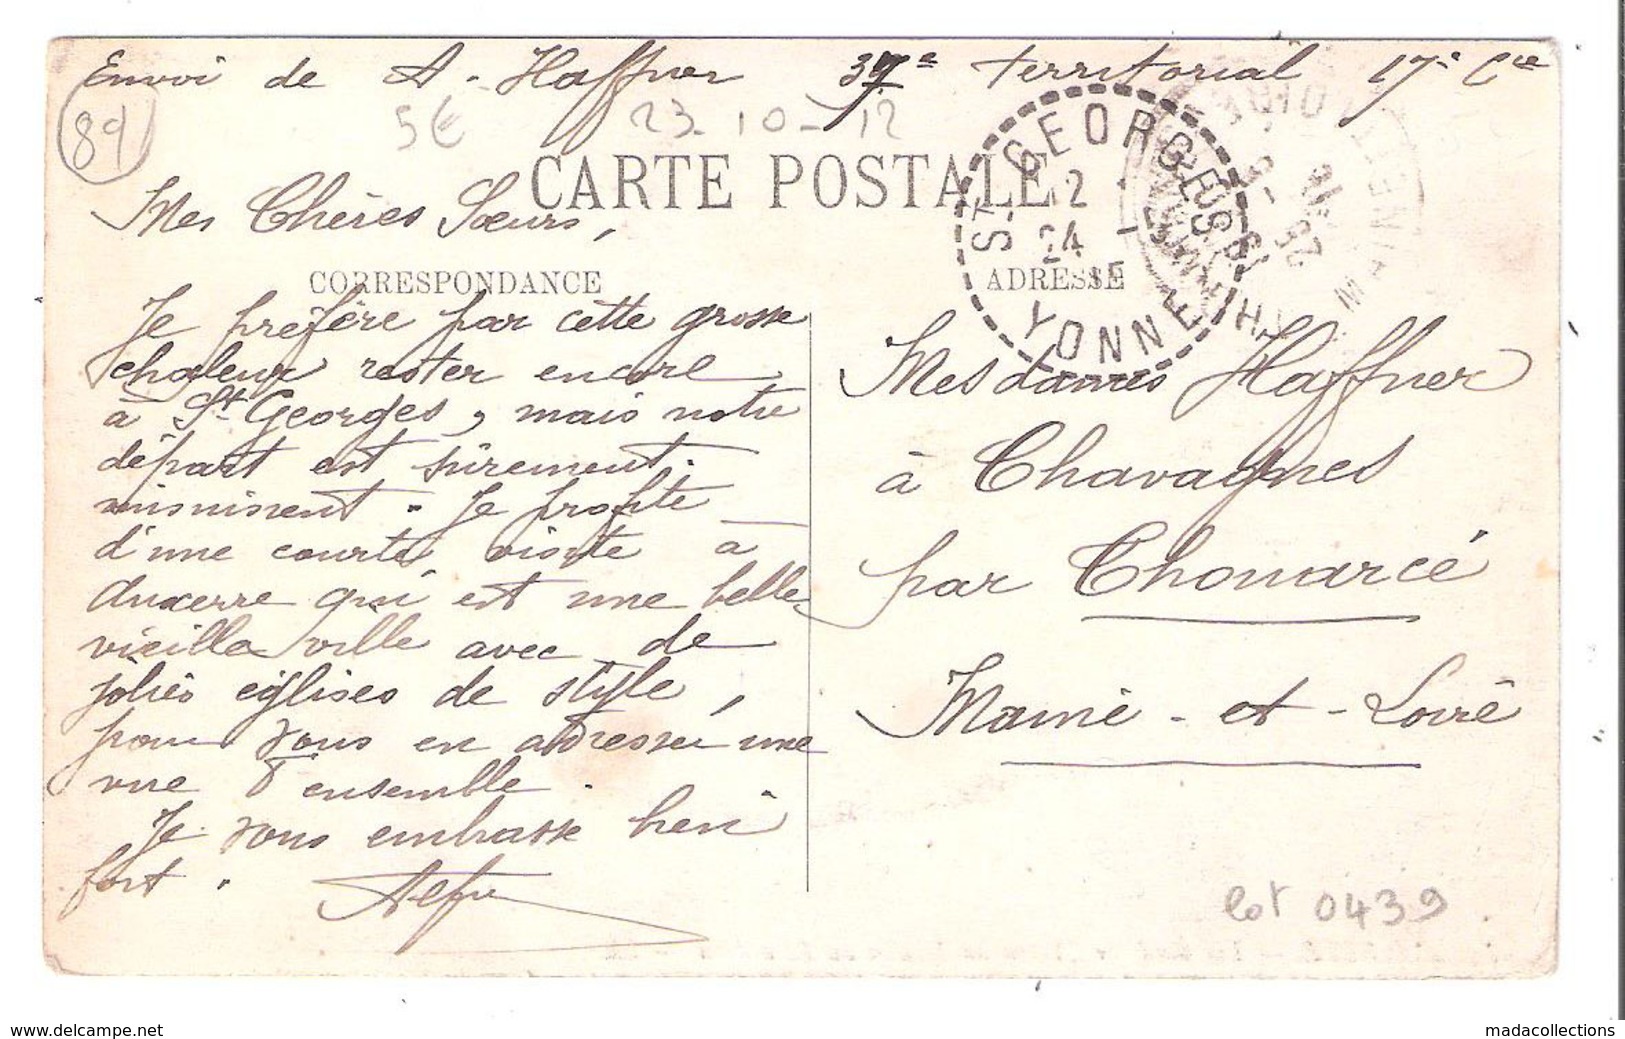 Envoi de A. Haffner 37e Territorial 17e Cie
89
5€ 23-10-12
CARTE POSTALE
Mes Chères Sœurs,
CORRESPONDANCE
Je préfère par cette grosse
chaleur rester encore
à St Georges, mais notre
départ est sûrement
imminent. Je profite
d'une courte visite à
Auxerre qui est une belle
vieille ville avec de
jolies églises de style,
pour vous en adresser une
vue d'ensemble.
Je vous embrasse bien
fort.
ST GEORGES
12
24
YONNE
ADRESSE
MAINE-ET-LOIRE
25
Mesdames Haffner
à Chavagnes
par Thouarcé
Maine-et-Loire
lot 0439
www.delcampe.net
madacollections